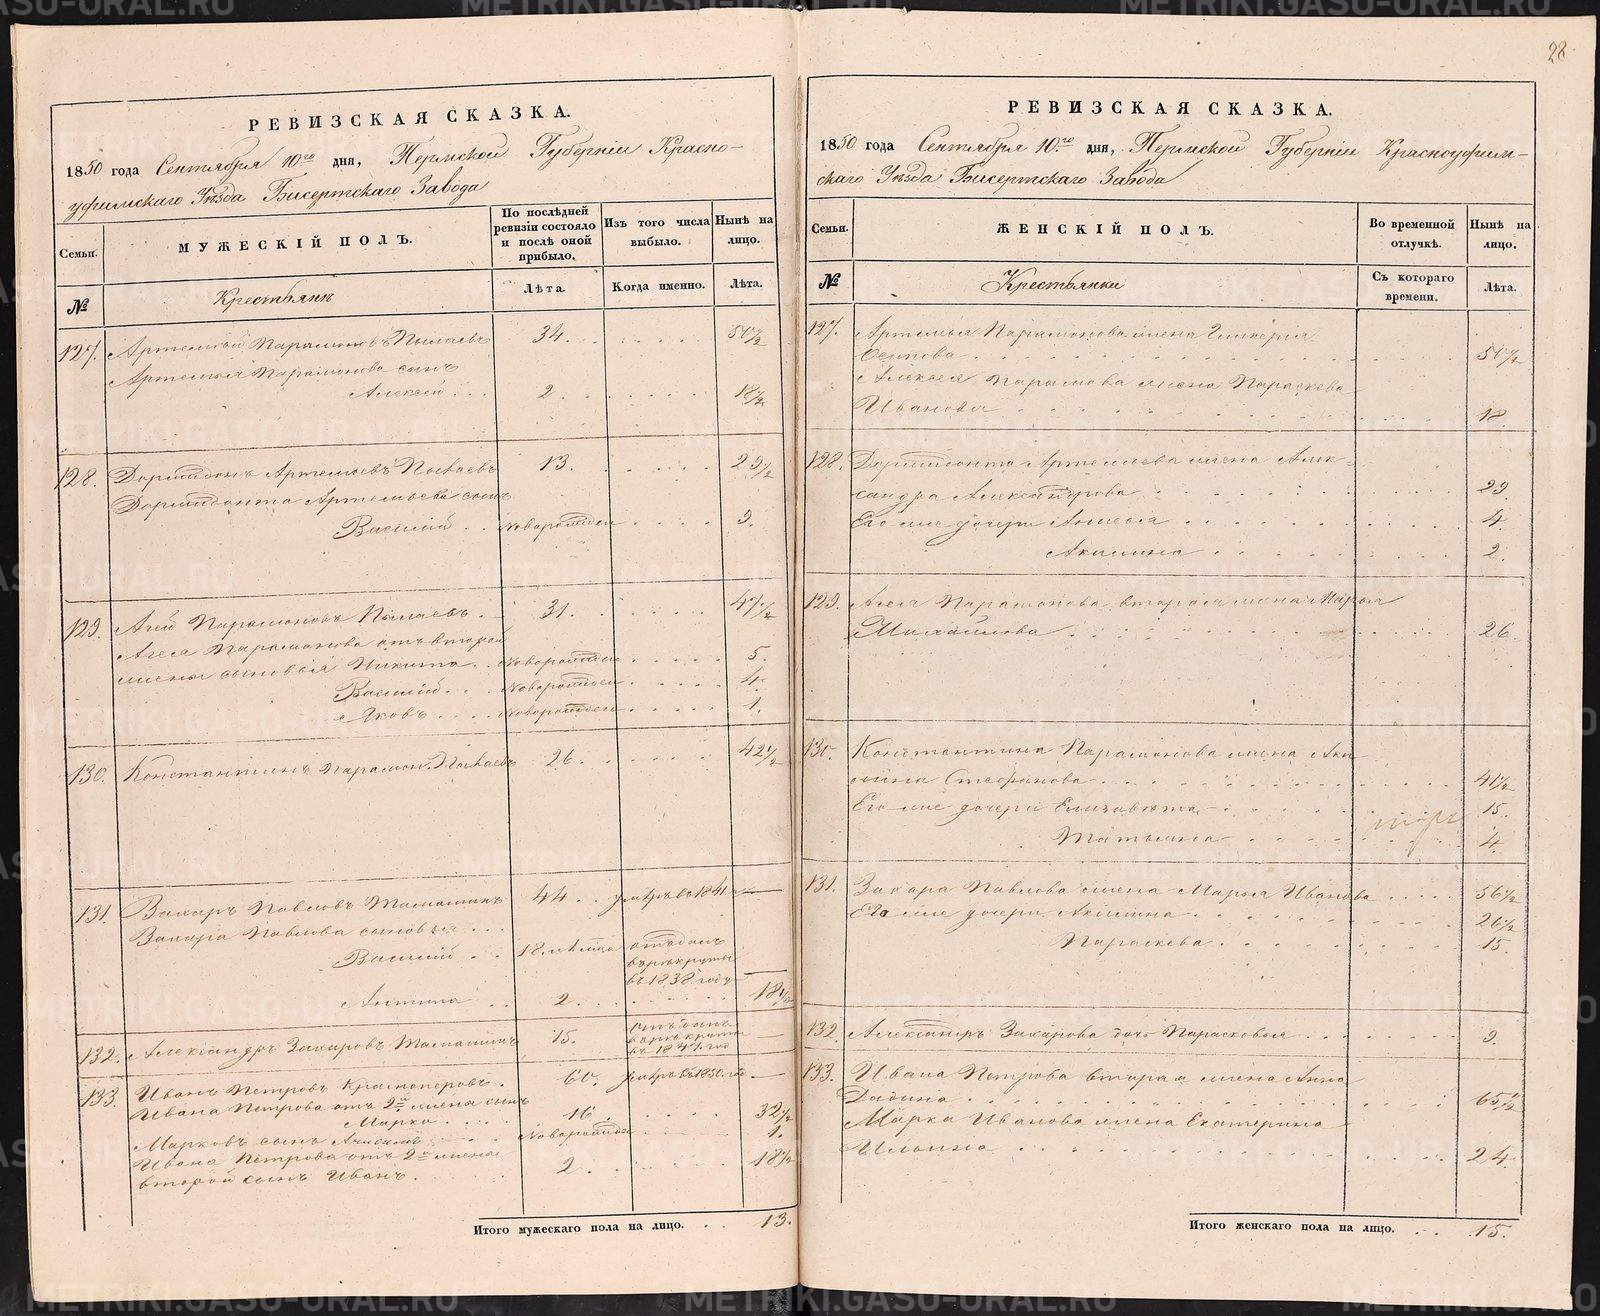 28
РЕВИЗСКАЯ СКАЗКА.
1850 года Сентября 10го дня, Пермской Губерніи Красно-
уфимскаго Уѣзда Бисертскаго Завода
Семьи.
МУЖЕСКІЙ ПОЛЪ.
По послѣдней ревизіи состояло и послѣ оной прибыло.
Изъ того числа выбыло.
Нынѣ на лицо.
№
Крестьянъ
Лѣта.
Когда именно.
Лѣта.
127. Артемій Парамоновъ 34. 50½
Артемья Парамонова сынъ
Алексей 2. 18½
128. Дормидонъ Артемьевъ 13. 29½
Дормидонта Артемьева сынъ
Василій Новорожден 9.
129. Агей Парамоновъ 31. 47½
Агея Парамонова отъ второй
жены сыновья Никита Новорожден 5.
Василій Новорожден 4.
Яковъ Новорожден 1.
130. Константинъ Парамон. 26. 42½
131. Захаръ Павловъ 44. умеръ въ 1841
Захара Павлова сыновья
Василій 18. отданъ
въ рекруты
въ 1838 году
Антипа 2. 18½
132. Александръ Захаровъ 15. отданъ
въ рекруты
въ 1847 год
133. Иванъ Петровъ Красноперовъ. 60. умеръ въ 1850. го
Ивана Петрова отъ 2й жены сынъ
Марко 16. 32½
Марковъ сынъ Новорожден 1.
Ивана Петрова отъ 2й жены
второй сынъ Иванъ. 2. 18½
Итого мужескаго пола на лицо. 13.
РЕВИЗСКАЯ СКАЗКА.
1850 года Сентября 10го дня, Пермской Губерніи Красноуфим-
скаго Уѣзда Бисертскаго Завода
Семьи.
ЖЕНСКІЙ ПОЛЪ.
Во временной отлучкѣ.
Нынѣ на лицо.
№
Крестьянки
Съ котораго времени.
Лѣта.
127. Артемья Парамонова жена Гликерія
Осипова 50½
Алексея жена Параскева
Иванова 18.
128. Дормидонта Артемьева жена Алек-
сандра Александрова 29
Его же дочери Анисья 4.
Акилина 2.
129. Агея Парамонова вторая жена Марья
Михайлова 26.
130. Константина Парамонова жена Аки-
лина Стефанова 41½
Его же дочери Елизавета 15.
Татьяна 4.
131. Захара Павлова жена Марья Иванова 56½
Его же дочери Акилина 26½
Параскева 15.
132. Александръ Захарова дочь Парасковья 9.
133. Ивана Петрова вторая жена Анна
65½
Марка Иванова жена Екатерина
Ильина 24.
Итого женскаго пола на лицо. 15.
METRIKI.GASO-URAL.RU